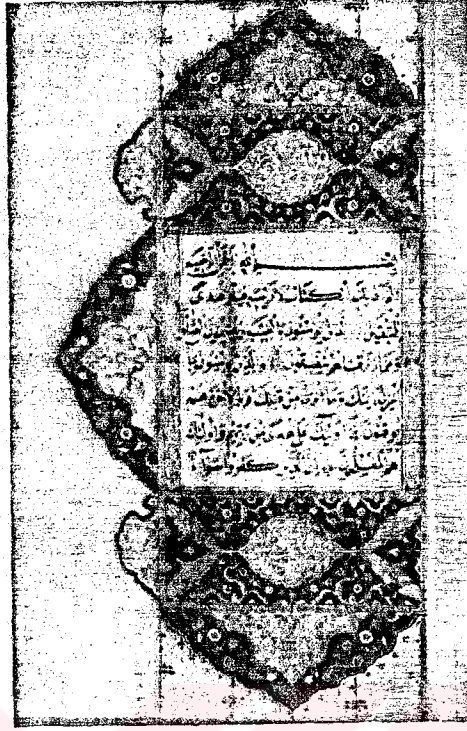 بسم الله الرحمن الرحيم
الم ذلك الكتاب لا ريب فيه هدى
للمتقين الذين يؤمنون بالغيب ويقيمون الصلاة
ومما رزقناهم ينفقون والذين يؤمنون بما
انزل اليك وما انزل من قبلك وبالاخرة هم
يوقنون اولئك على هدى من ربهم واولئك
هم المفلحون ان الذين كفروا سواء